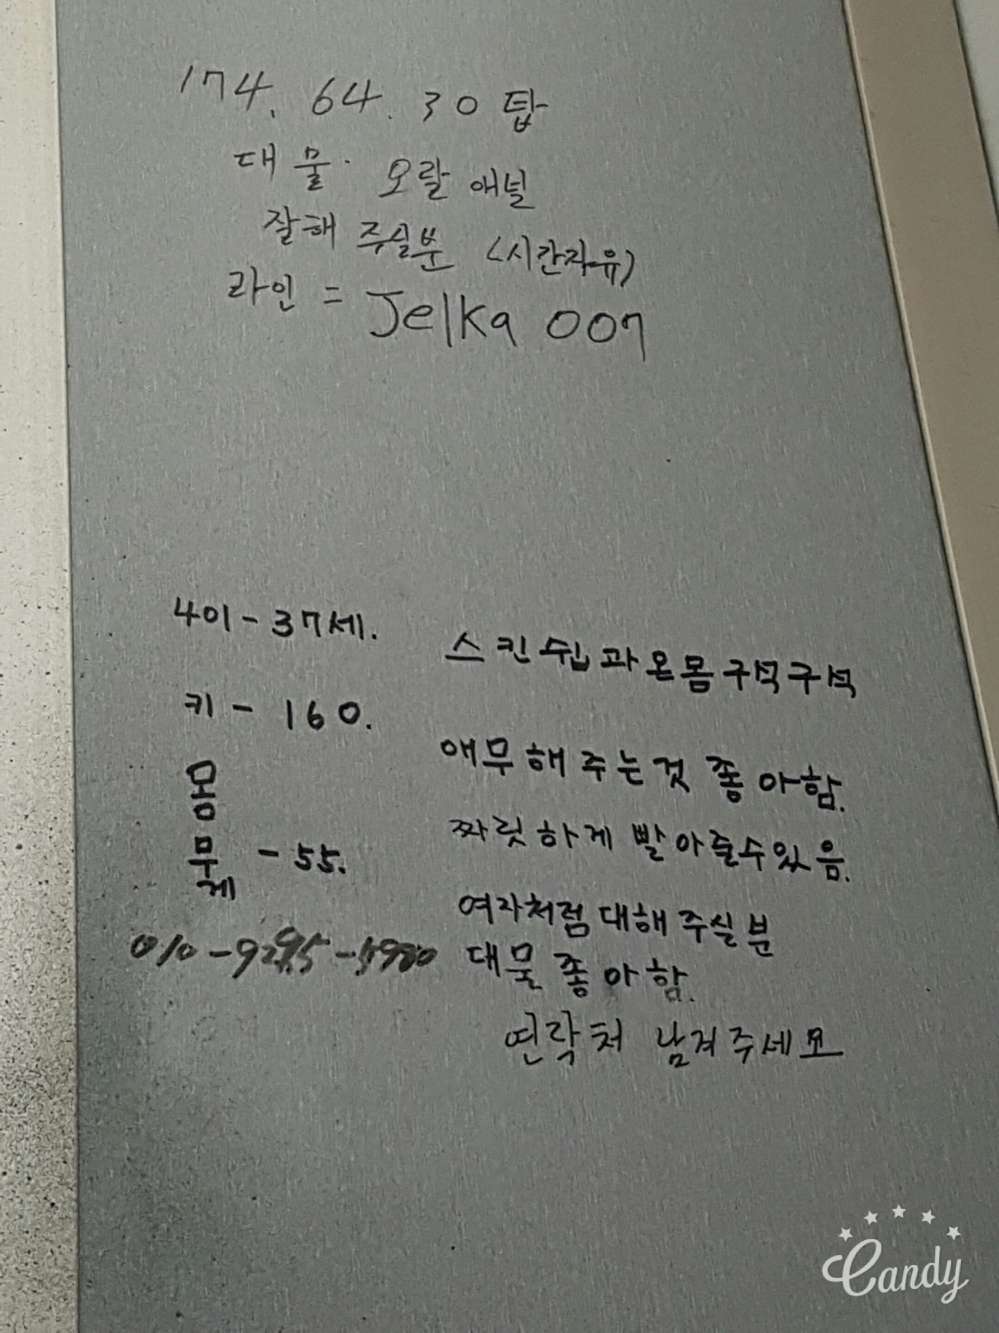 174. 64. 30 탑
대물. 오랄 애널
잘해 주실분 <시간자유)
라인 = Jelka 007
나이-37세.
키-160.
몸
무
게 -55.
스킨쉽과온몸구석구석
애무해주는것 좋아함.
짜릿하게 빨아줄수있음.
여자처럼대해주실분
대물좋아함.
연락처 남겨주세요
Candy